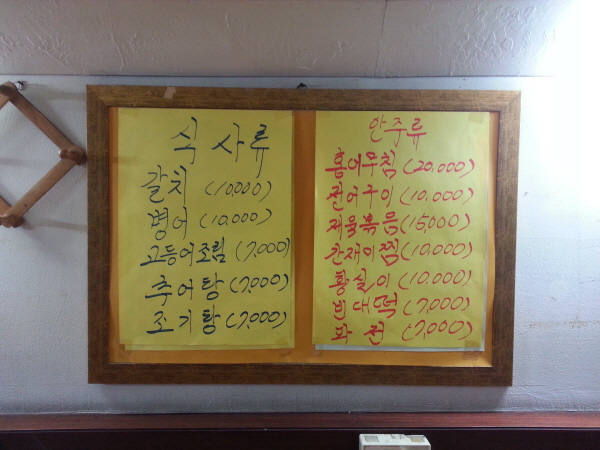 식사류
갈치 (10,000)
병어 (10,000)
고등어조림 (7,000)
추어탕 (7,000)
조기탕 (7,000)
안주류
홍어무침 (20.000)
전어구이 (10.000)
제육볶음 (15,000)
간재미찜 (10,000)
황실이 (10.000)
빈대떡 (7,000)
파전 (7,000)